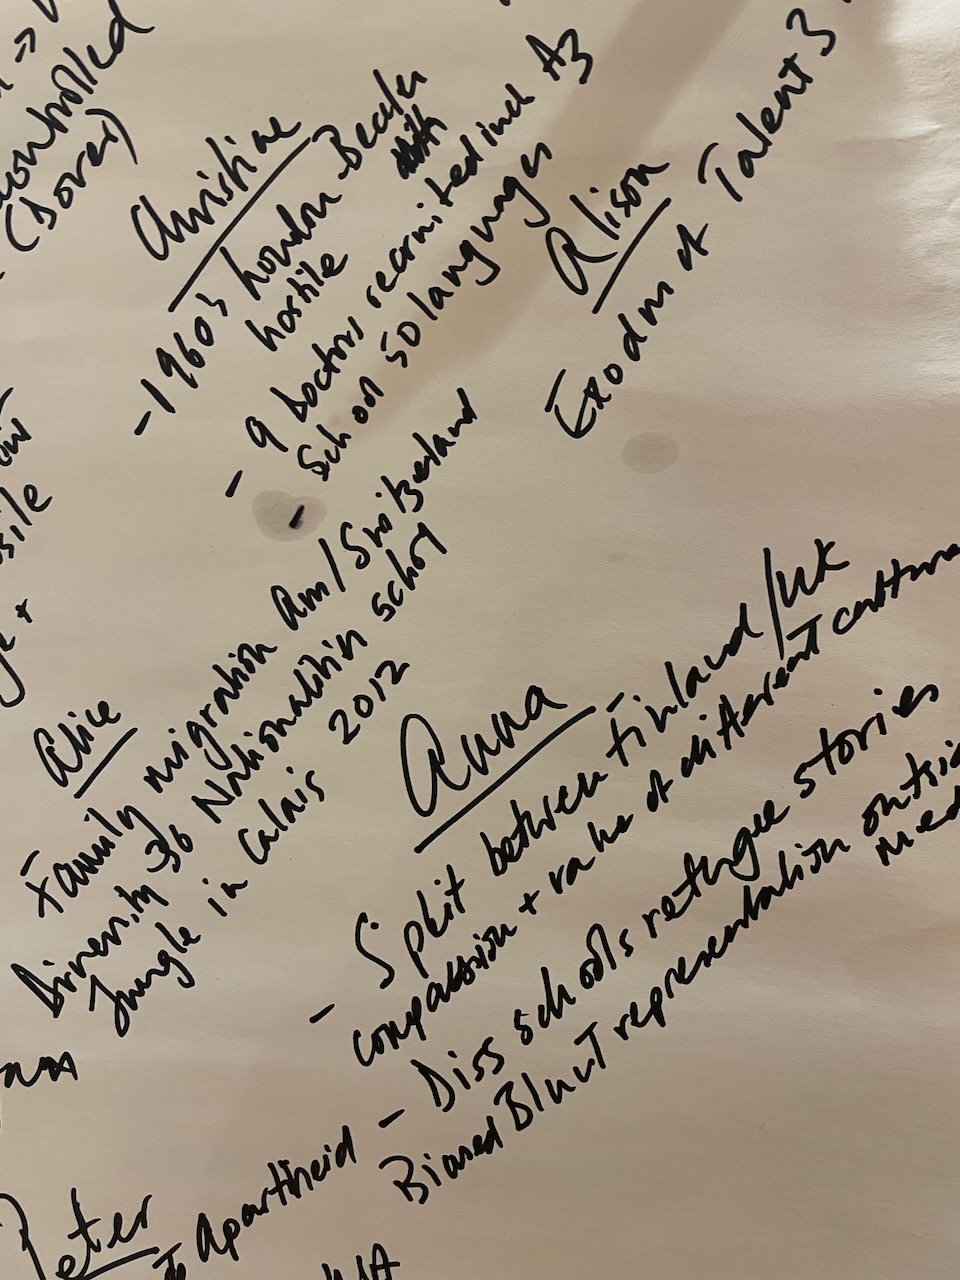 controlled
(Dover)
Christine
- 1960's London - Becales
hostile
- 9 Doctors recruited incl A3
School 50 languages
Alison
Exodus of Talent 3
Alice
Family migration Am/Switzerland
Diversity 36 Nationalities school
Jungle in Calais 2012
Anna
- Split between Finland/UK
compassion + values of different culture
- Diss schools refugee stories
Biased Blunt representation outsid
med
Peter
Apartheid